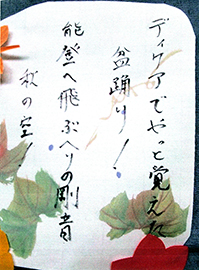 ディケアでやっと覚えた
盆踊り!
能登へ飛ぶヘリの剛音
秋の空!